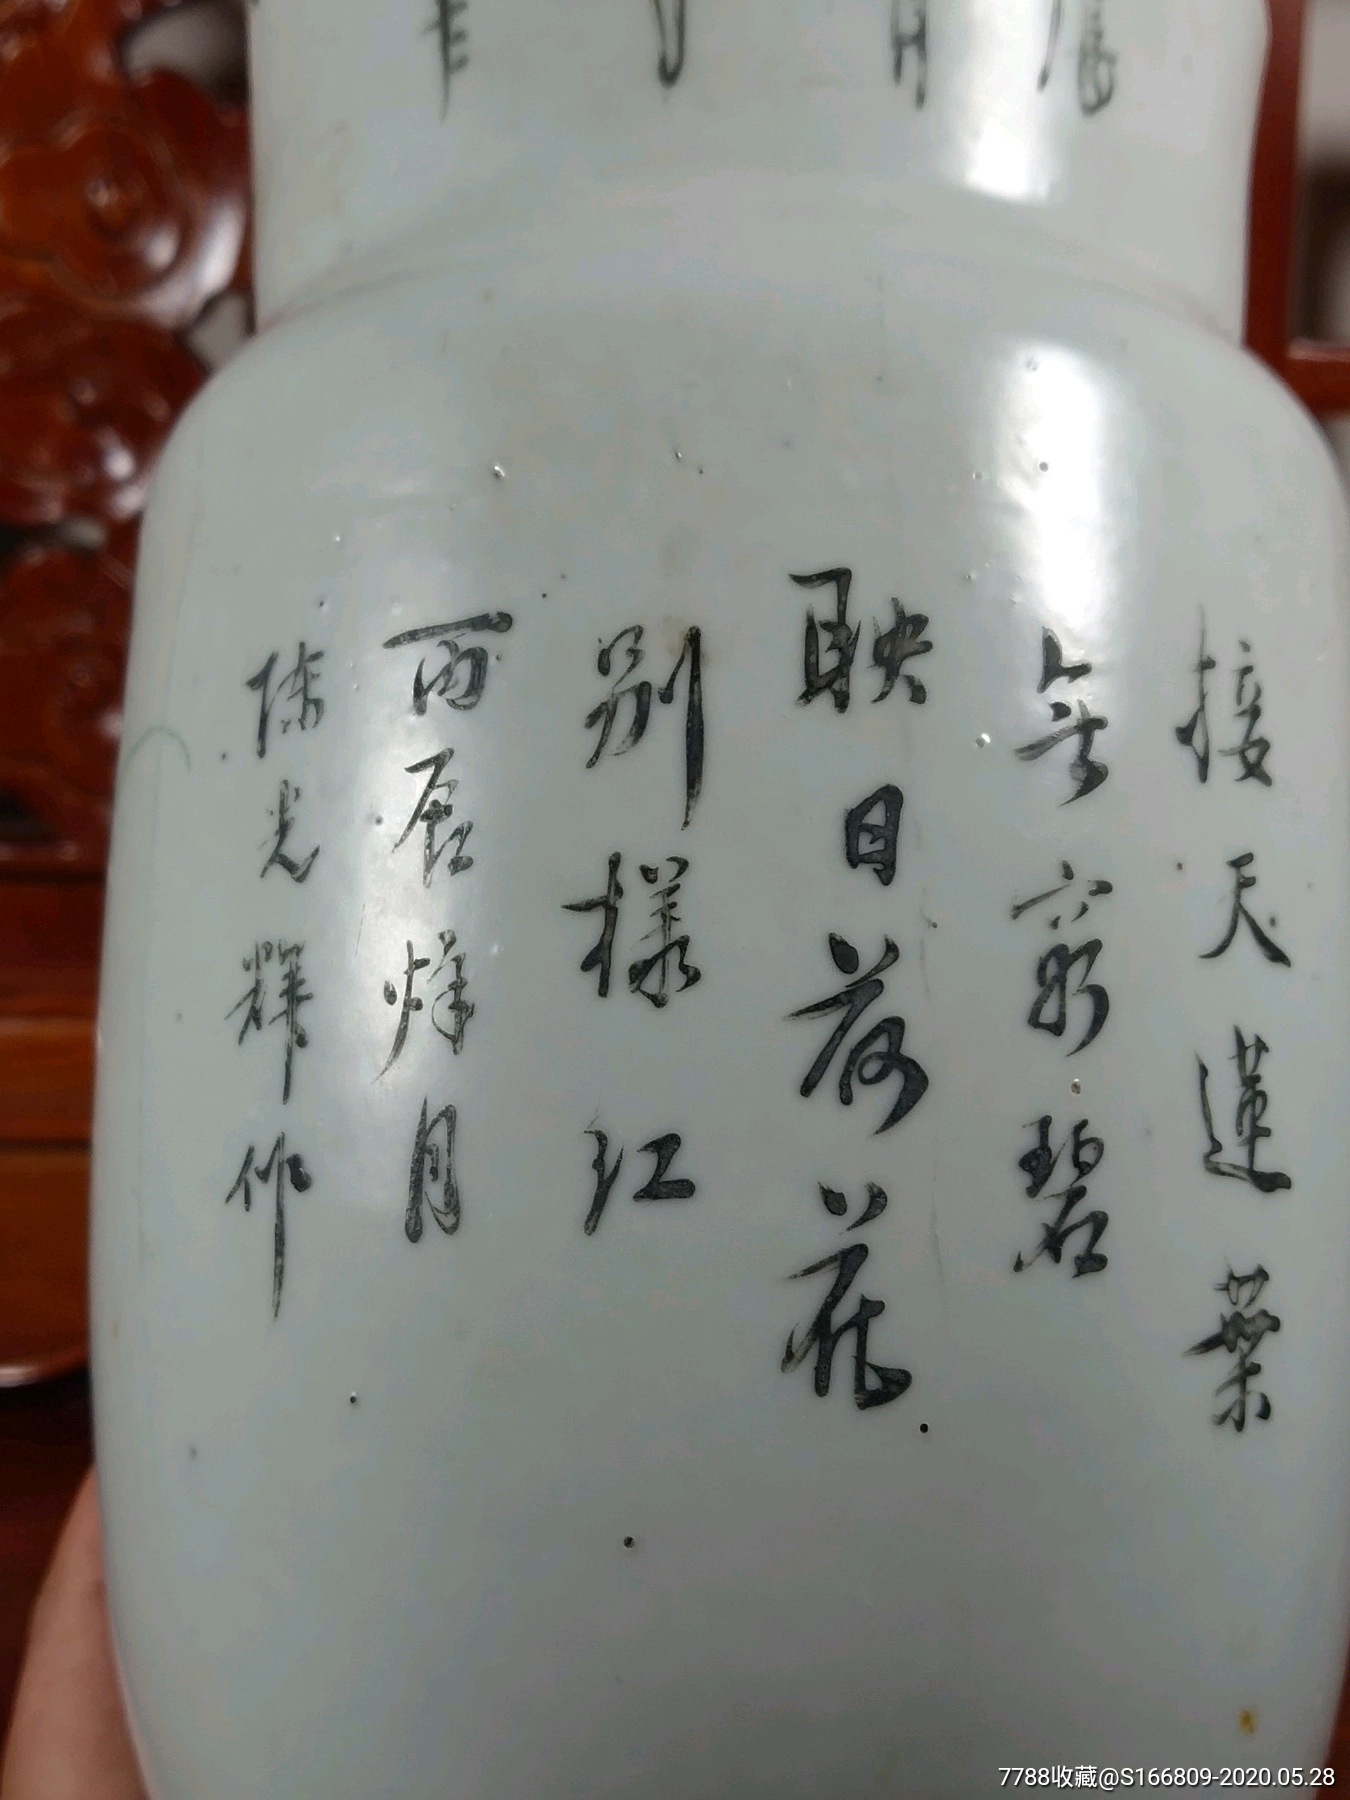 接天蓮葉
無窮碧
映日荷花
別樣红
丙辰烽月
陈光輝作
7788收藏@S166809-2020.05.28